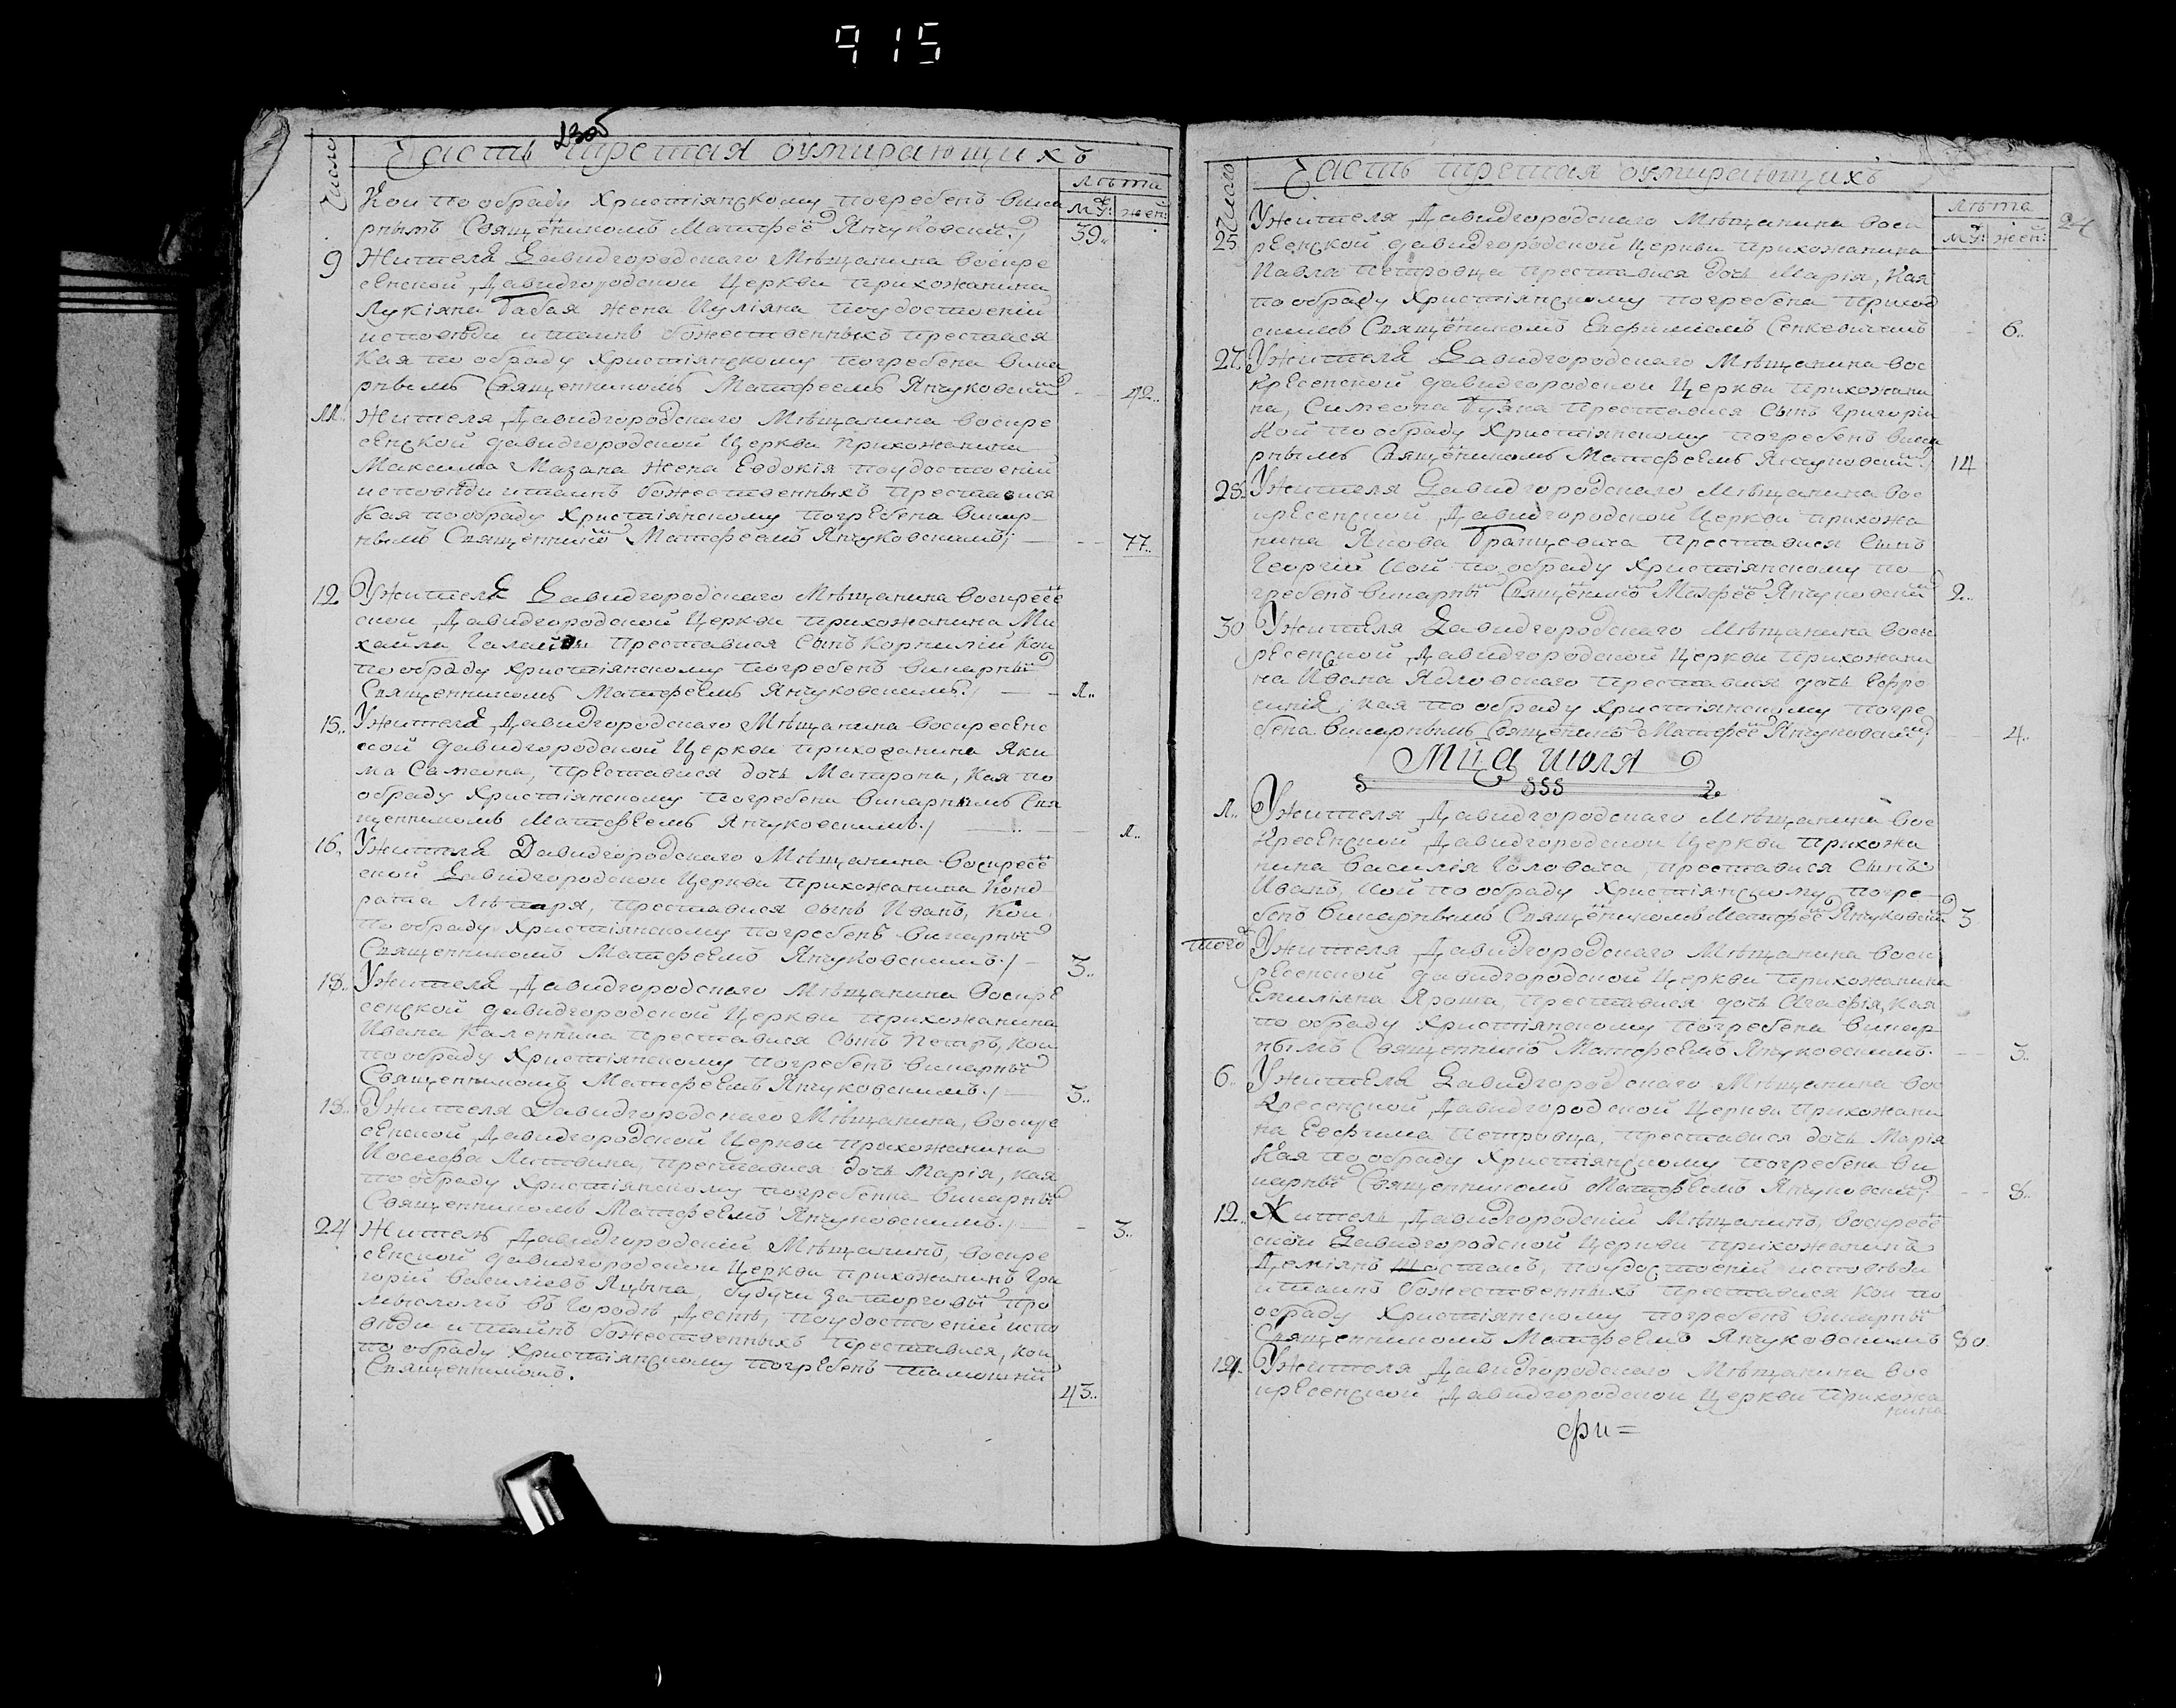 915
Часть третая оумирающихъ
Число
Лѣта
муж: жен:
Кои по обряду Христіянскому погребенъ вика
рнымъ Священикомъ Матфеемъ Янчуковским /
39..
9 Жителя Давидгородскаго Мѣщанина воскре
сенской Давидгородской Церкви прихожанина
Лукіяна Бабая жена Иуліяна поудостоеній
исповѣди итаинъ божественныхъ преставися
Кая по обряду Христіянскому погребена вика
рнымъ Священникомъ Матфеемъ Янчуковским
42..
11. Жителя Давидгородскаго Мѣщанина воскре
сенской Давидгородской Церкви Прихожанина
Максима Мазана жена Евдокія поудостоеній
исповѣди итаинъ божественныхъ преставися
Кая пообряду Христіянскому погребена викар-
нымъ Священнико Матфеемъ Янчуковскимъ;
77..
12 Ужителя Давидгородскаго Мѣщанина воскресе
ской Давидгородской Церкви прихожанина Ми
хайла преставися Сынъ Корнилій Кои
по обряду Христіянскому погребенъ викарны
Священникомъ Матфеемъ Янчуковскимъ /
1..
15.. Ужителя Давидгородскаго Мѣщанина воскресенс
ской Давидгородской Церкви прихожанина Яки
ма Самсона, преставися дочь Матрона, Кая по
обряду Христіянскому погребена викарнымъ Свя
щенникомъ Матфеемъ Янчуковскимъ /
1..
16. Ужителя Давидгородскаго Мѣщанина воскресе
ской Давидгородской Церкви прихожанина Конд
рата преставися сынъ Иванъ, Кои
по обряду Христіянскому погребенъ викарны
Священникомъ Матфеемъ Янчуковскимъ /
3..
18.. Ужителя Давидгородскаго Мѣщанина воскре
сенской Давидгородской Церкви прихожанина
Ивана Каленника преставися Сынъ Петръ, Кои
по обряду Христіянскому погребенъ викарны
Священникомъ Матфеемъ Янчуковскимъ /
3..
18.. Ужителя Давидгородскаго Мѣщанина, воскре
сенской Давидгородской Церкви прихожанина
Иосифа Литвина, преставися дочь Марія, кая
по обряду Христіянскому погребенна викарны
Священникомъ Матфеемъ Янчуковскимъ. /
3..
24 Житель Давидгородскій Мѣщанинъ, воскре
сенской Давидгородской Церкви прихожанинъ Гри
горій Василіевъ Яцына, будучи за торговы про
мысломъ въ городѣ поудостоеній испо
вѣди и таинъ божественныхъ преставися, кои
по обряду Христіянскому погребенъ тамошни
Священникомъ.
43..
Часть третая оумирающихъ
Число
Лѣта
муж: жен:
24
25 Ужителя Давидгородскаго Мѣщанина воск
ресенской Давидгородской Церкви прихожанина
Павла Петровца преставися дочь Марія, Кая
по обряду Христіянскому погребена приход
скимъ Священикомъ Евфиміемъ Сенкевичемъ
6..
27. Ужителя Давидгородскаго Мѣщанина вос
кресенской Давидгородской Церкви прихожани
на, Симеона Буяна преставися Сынъ Григорій
Кой по обряду Христіянскому погребенъ вика
рнымъ Священикомъ Матфеемъ Янчуковски /
14
28. Ужителя Давидгородскаго Мѣщанина вос
кресенской Давидгородской Церкви прихожа
нина Якова Бранцевича преставися Сынъ
Георгій Кой по обряду Христіянскому по
гребенъ викарны Священико Матфее Янчуковски
2..
30 Ужителя Давидгородскаго Мѣщанина воск
ресенской Давидгородской Церкви прихожани
на Ивана Ядловскаго преставися дочь Ефро
синія, кая по обряду Христіянскому погре
бена викарнымъ Священико Матфее Янчуковски /
4..
Мца июля
1.. Ужителя Давидгородскаго Мѣщанина вос
кресенской Давидгородской Церкви прихожа
нина Василія Головача, преставися Сынъ
Иванъ, Кой по обряду Христіянскому погре-
бенъ викарнымъ Священикомъ Матфее Янчуковски
3
того Ужителя Давидгородскаго Мѣщанина воск
ресенской Давидгородской Церкви прихожанина
Емиліяна Яроша, преставися дочь Агафія, Кая
по обряду Христіянскому погребена викар
нымъ Священнико Матфеемъ Янчуковскимъ.
3..
6.. Ужителя Давидгородскаго Мѣщанина вос
кресенской Давидгородской Церкви Прихожани
на Евфима Петровца, преставися дочь Марія
Кая по обряду Христіянскому погребена ви
карны Священникомъ Матфеемъ Янчуковски.
8..
12.. Житель Давидгородскій Мѣщанинъ, воскресе
ской Давидгородской Церкви прихожанинъ
Деміянъ Шостакъ, поудостоеній исповѣди
и таинъ божественныхъ преставися Кои по
обряду Христіянскому погребенъ викарны
Священникомъ Матфеемъ Янчуковскимъ
80.
14.. Ужителя Давидгородскаго Мѣщанина вос
кресенской Давидгородской Церкви Прихожа
нина